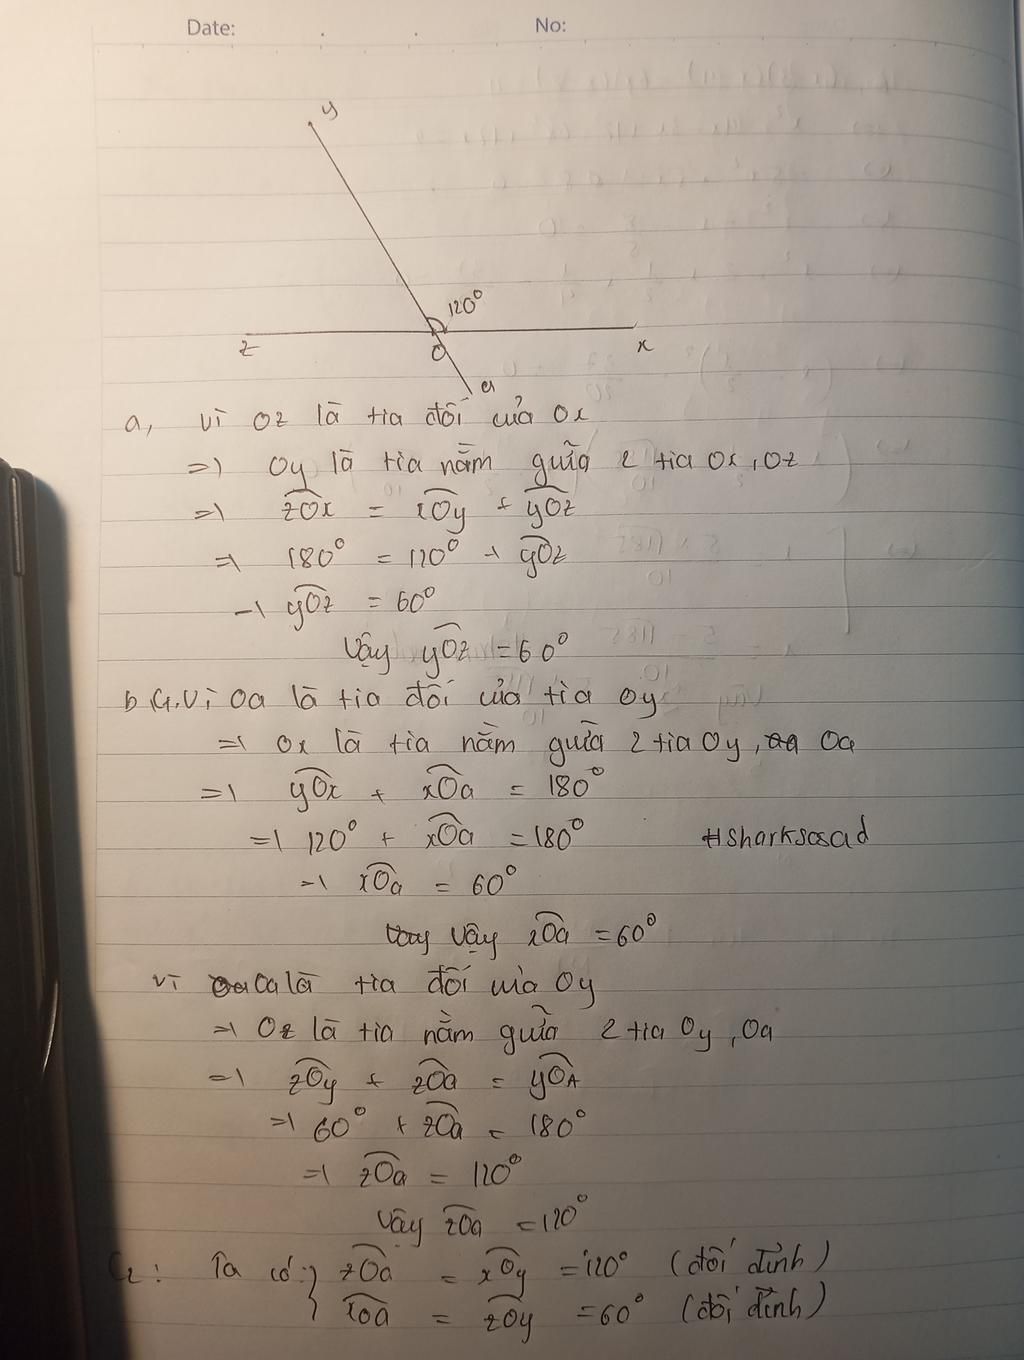 Date:
No:
y
120°
z
O
x
a
a, Vì Oz là tia đối của Ox
=> Oy là tia nằm giữa 2 tia Ox, Oz
=> zOx = xOy + yOz
=> 180° = 120° + yOz
=> yOz = 60°
Vậy yOz = 60°
b, C1. Vì Oa là tia đối của tia Oy
=> Ox là tia nằm giữa 2 tia Oy, Oa
=> yOx + xOa = 180°
=> 120° + xOa = 180°
#sharksosad
=> xOa = 60°
Vậy xOa = 60°
Vì Oa là tia đối của Oy
=> Oz là tia nằm giữa 2 tia Oy, Oa
=> zOy + zOa = yOA
=> 60° + zOa = 180°
=> zOa = 120°
Vậy zOa = 120°
C2: Ta có: } zOa = xOy = 120° (đối đỉnh)
xOa = zOy = 60° (đối đỉnh)